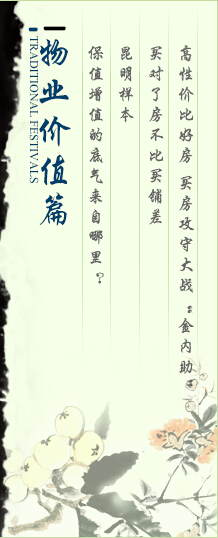 物业价值篇
TRADITIONAL FESTIVALS
保值增值的底气来自哪里？
昆明样本
买对了房不比买铺差
高性价比好房 买房攻守大战：金内助